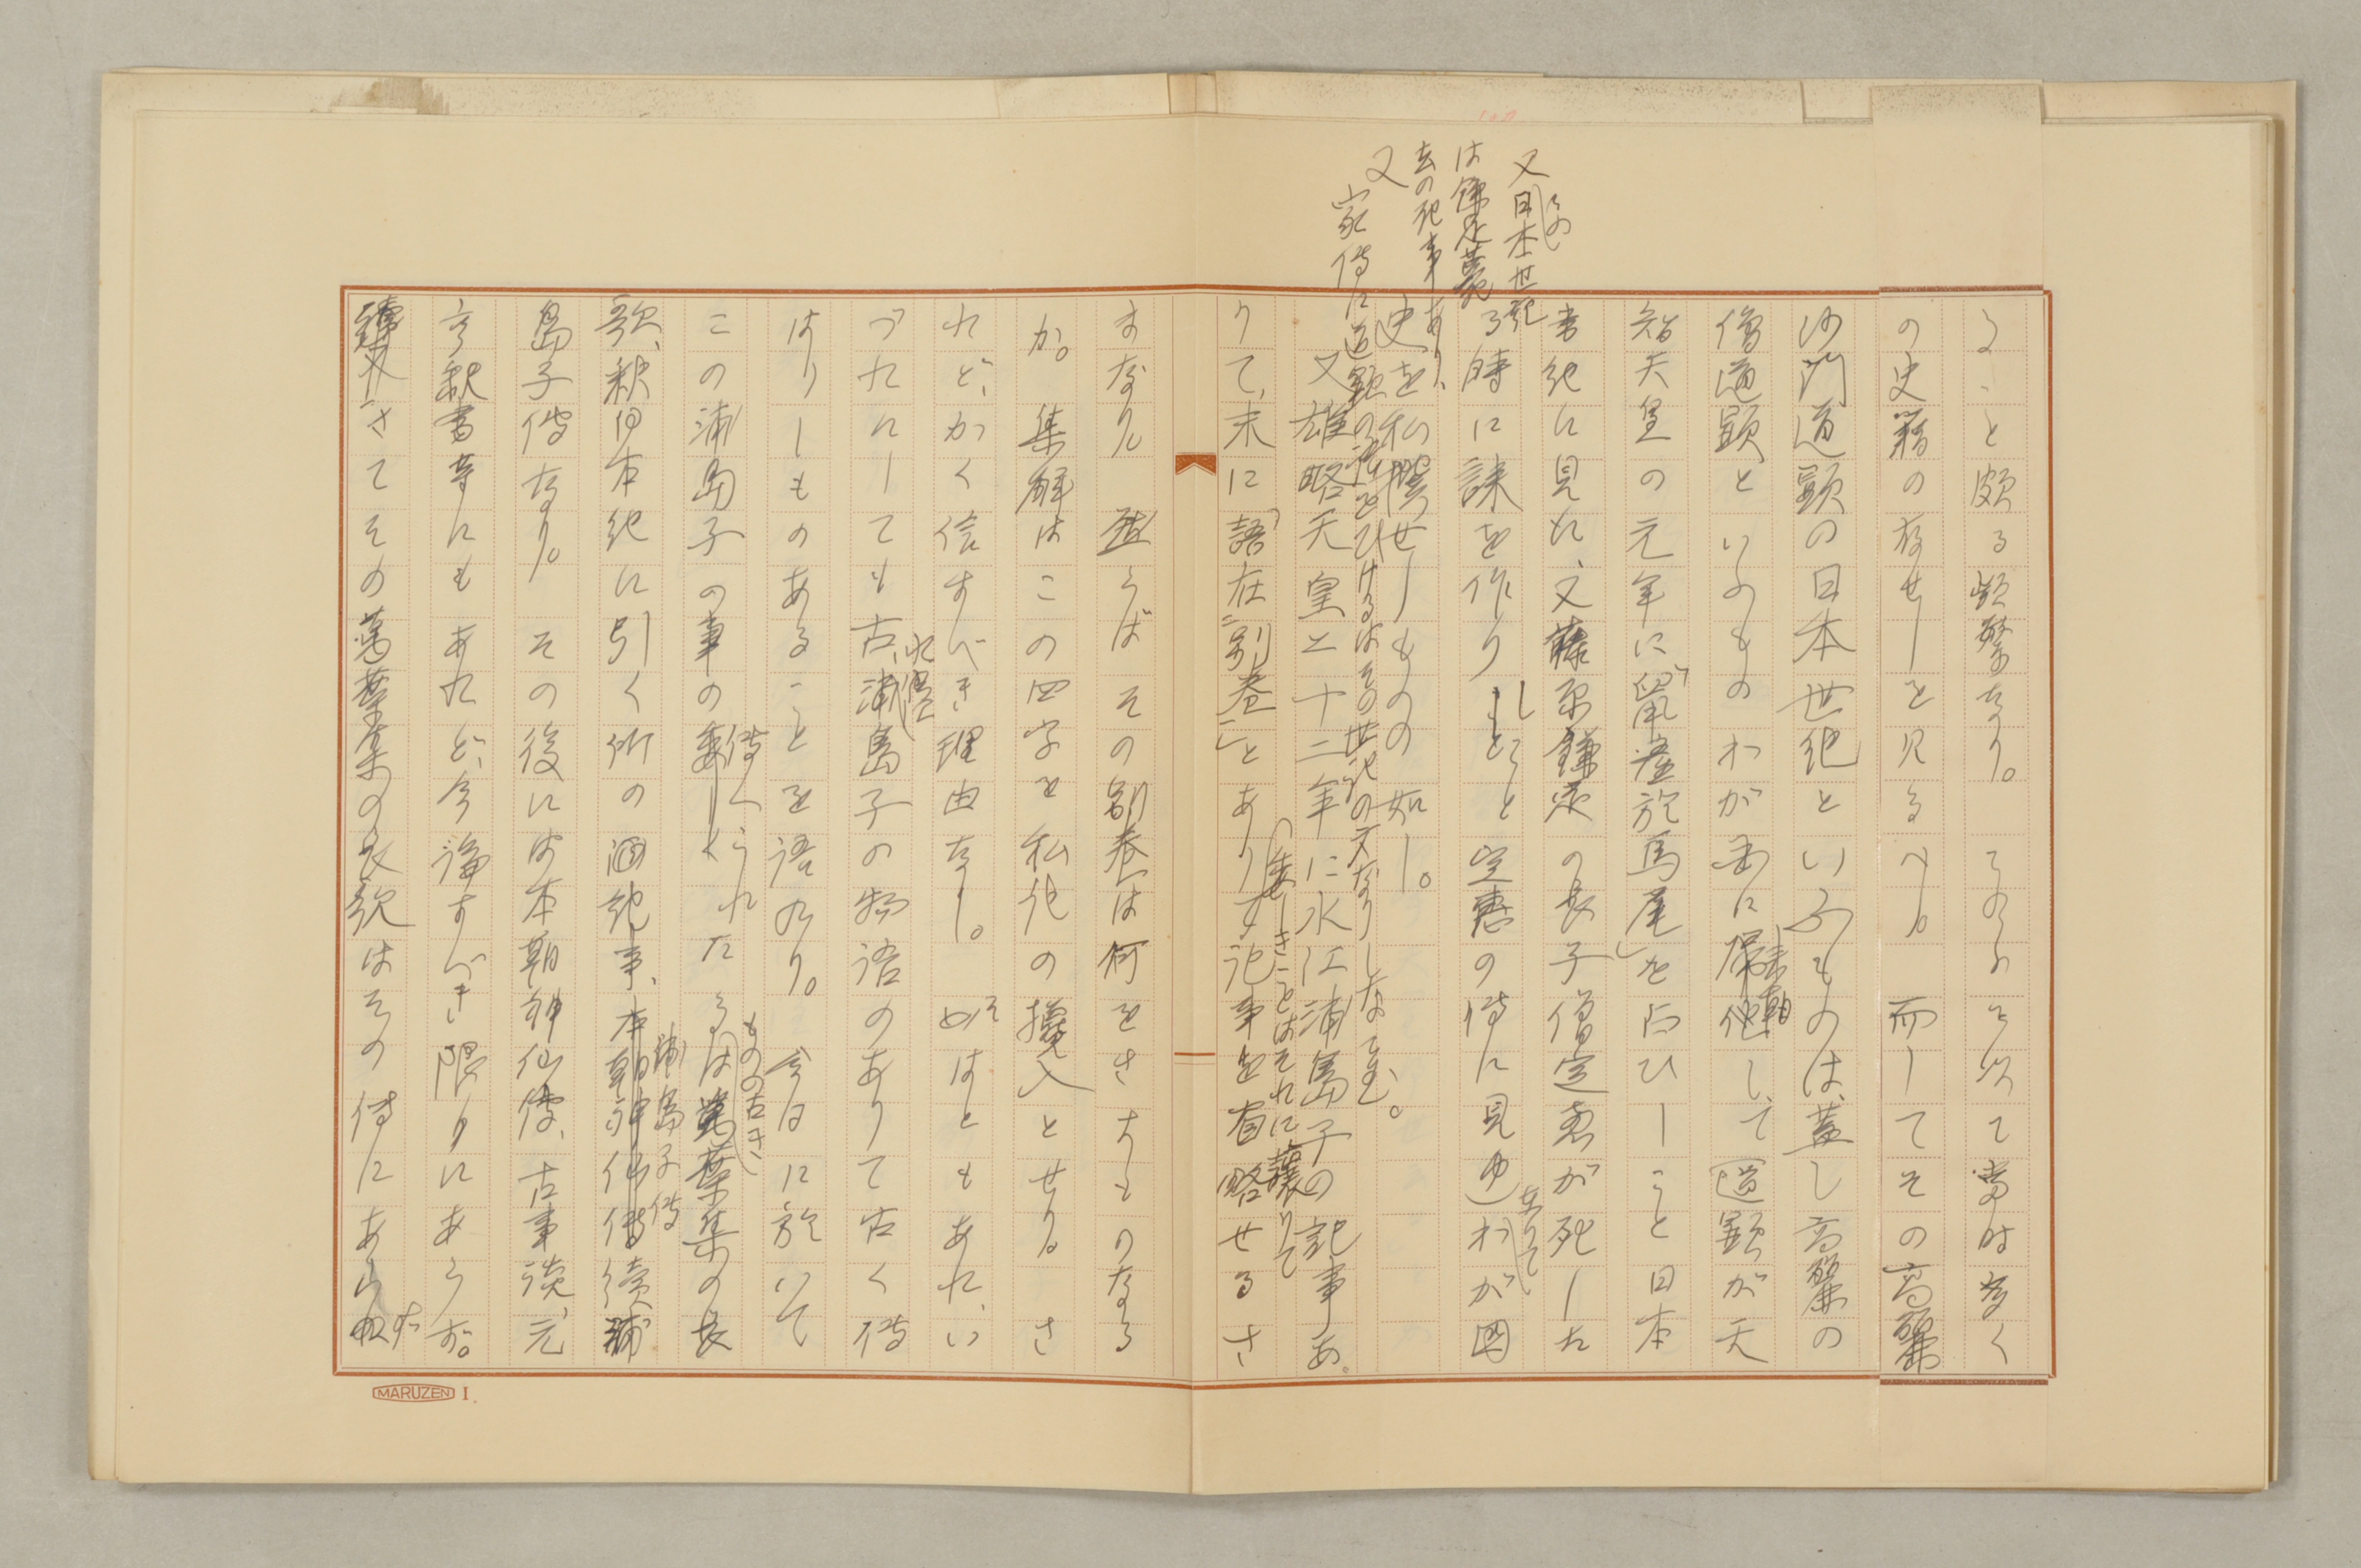 ること頗る頻繁なり。これらを以て当時多く
の史籍の存せしを見るべし。而してその高麗
沙門道顕の日本世紀といふものは、蓋し高麗の
僧道顕といふものわが国に帰化して、道顕が天
智天皇の元年に「鼠産於馬尾」を占ひしこと日本
書紀に見え、又藤原鎌足の長子僧定恵が死した
る時に誄を作りしことと定恵の伝に見ゆ。わが国
に在りて
史を私撰せしものの如し。
又日本世記
は鎌足薨
去の記事あり、
又
家伝に道顕の
けるはその世記の文なりしなるべし。
又雄略天皇二十二年に水江浦島子の記事あ
りて、末に「語在二別巻一」とあり
委しきことはそれに譲りて
記事を省略せるさ
まなり。然らばその別巻は何をさすものなる
か。集解はこの四字を私記の攙入とせり。さ
れど、かく信すべき理由なし。そはともあれ、い
づれにしても古、浦島子の物語のありて古く伝
はりしものあることを語れり。今日に於いて
この浦島子の事の伝へられたるものの古きは萬葉集の長
歌、釈日本紀に引く所の
浦島子伝
島子伝なり。その後には本朝神仙伝、古事談、元
亨釈書等にもあれど、今論すべき限りにあらず。
さてその萬葉集の長歌はその伝にあらず
MARUZEN I.